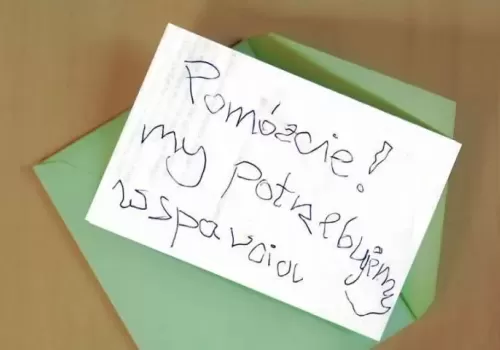 Pomózcie!
my potrzebujemy
wsparcia